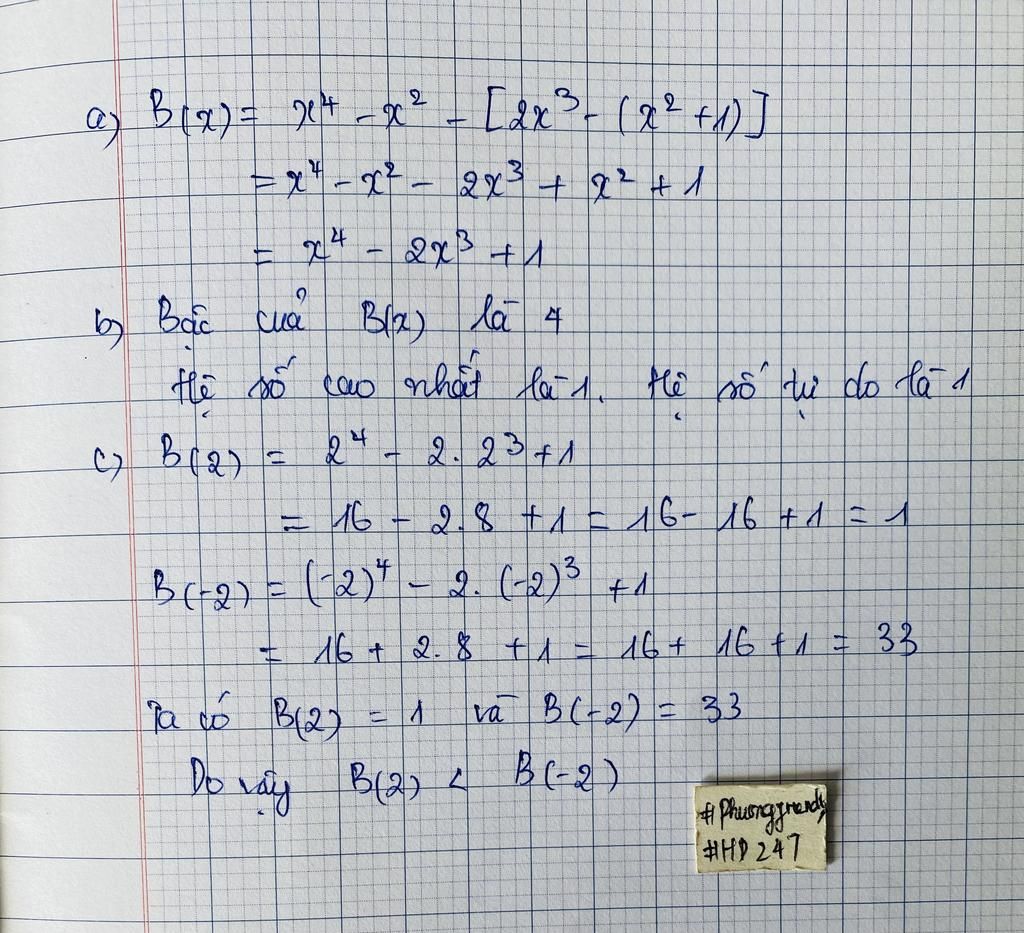 a) B(x) = x⁴ - x² - [2x³ - (x² + 1)]
= x⁴ - x² - 2x³ + x² + 1
= x⁴ - 2x³ + 1
b) Bậc của B(x) là 4
Hệ số cao nhất là 1. Hệ số tự do là 1
c) B(2) = 2⁴ - 2.2³ + 1
= 16 - 2.8 + 1 = 16 - 16 + 1 = 1
B(-2) = (-2)⁴ - 2.(-2)³ + 1
= 16 + 2.8 + 1 = 16 + 16 + 1 = 33
Ta có B(2) = 1 và B(-2) = 33
Do vậy B(2) < B(-2)
#HD247